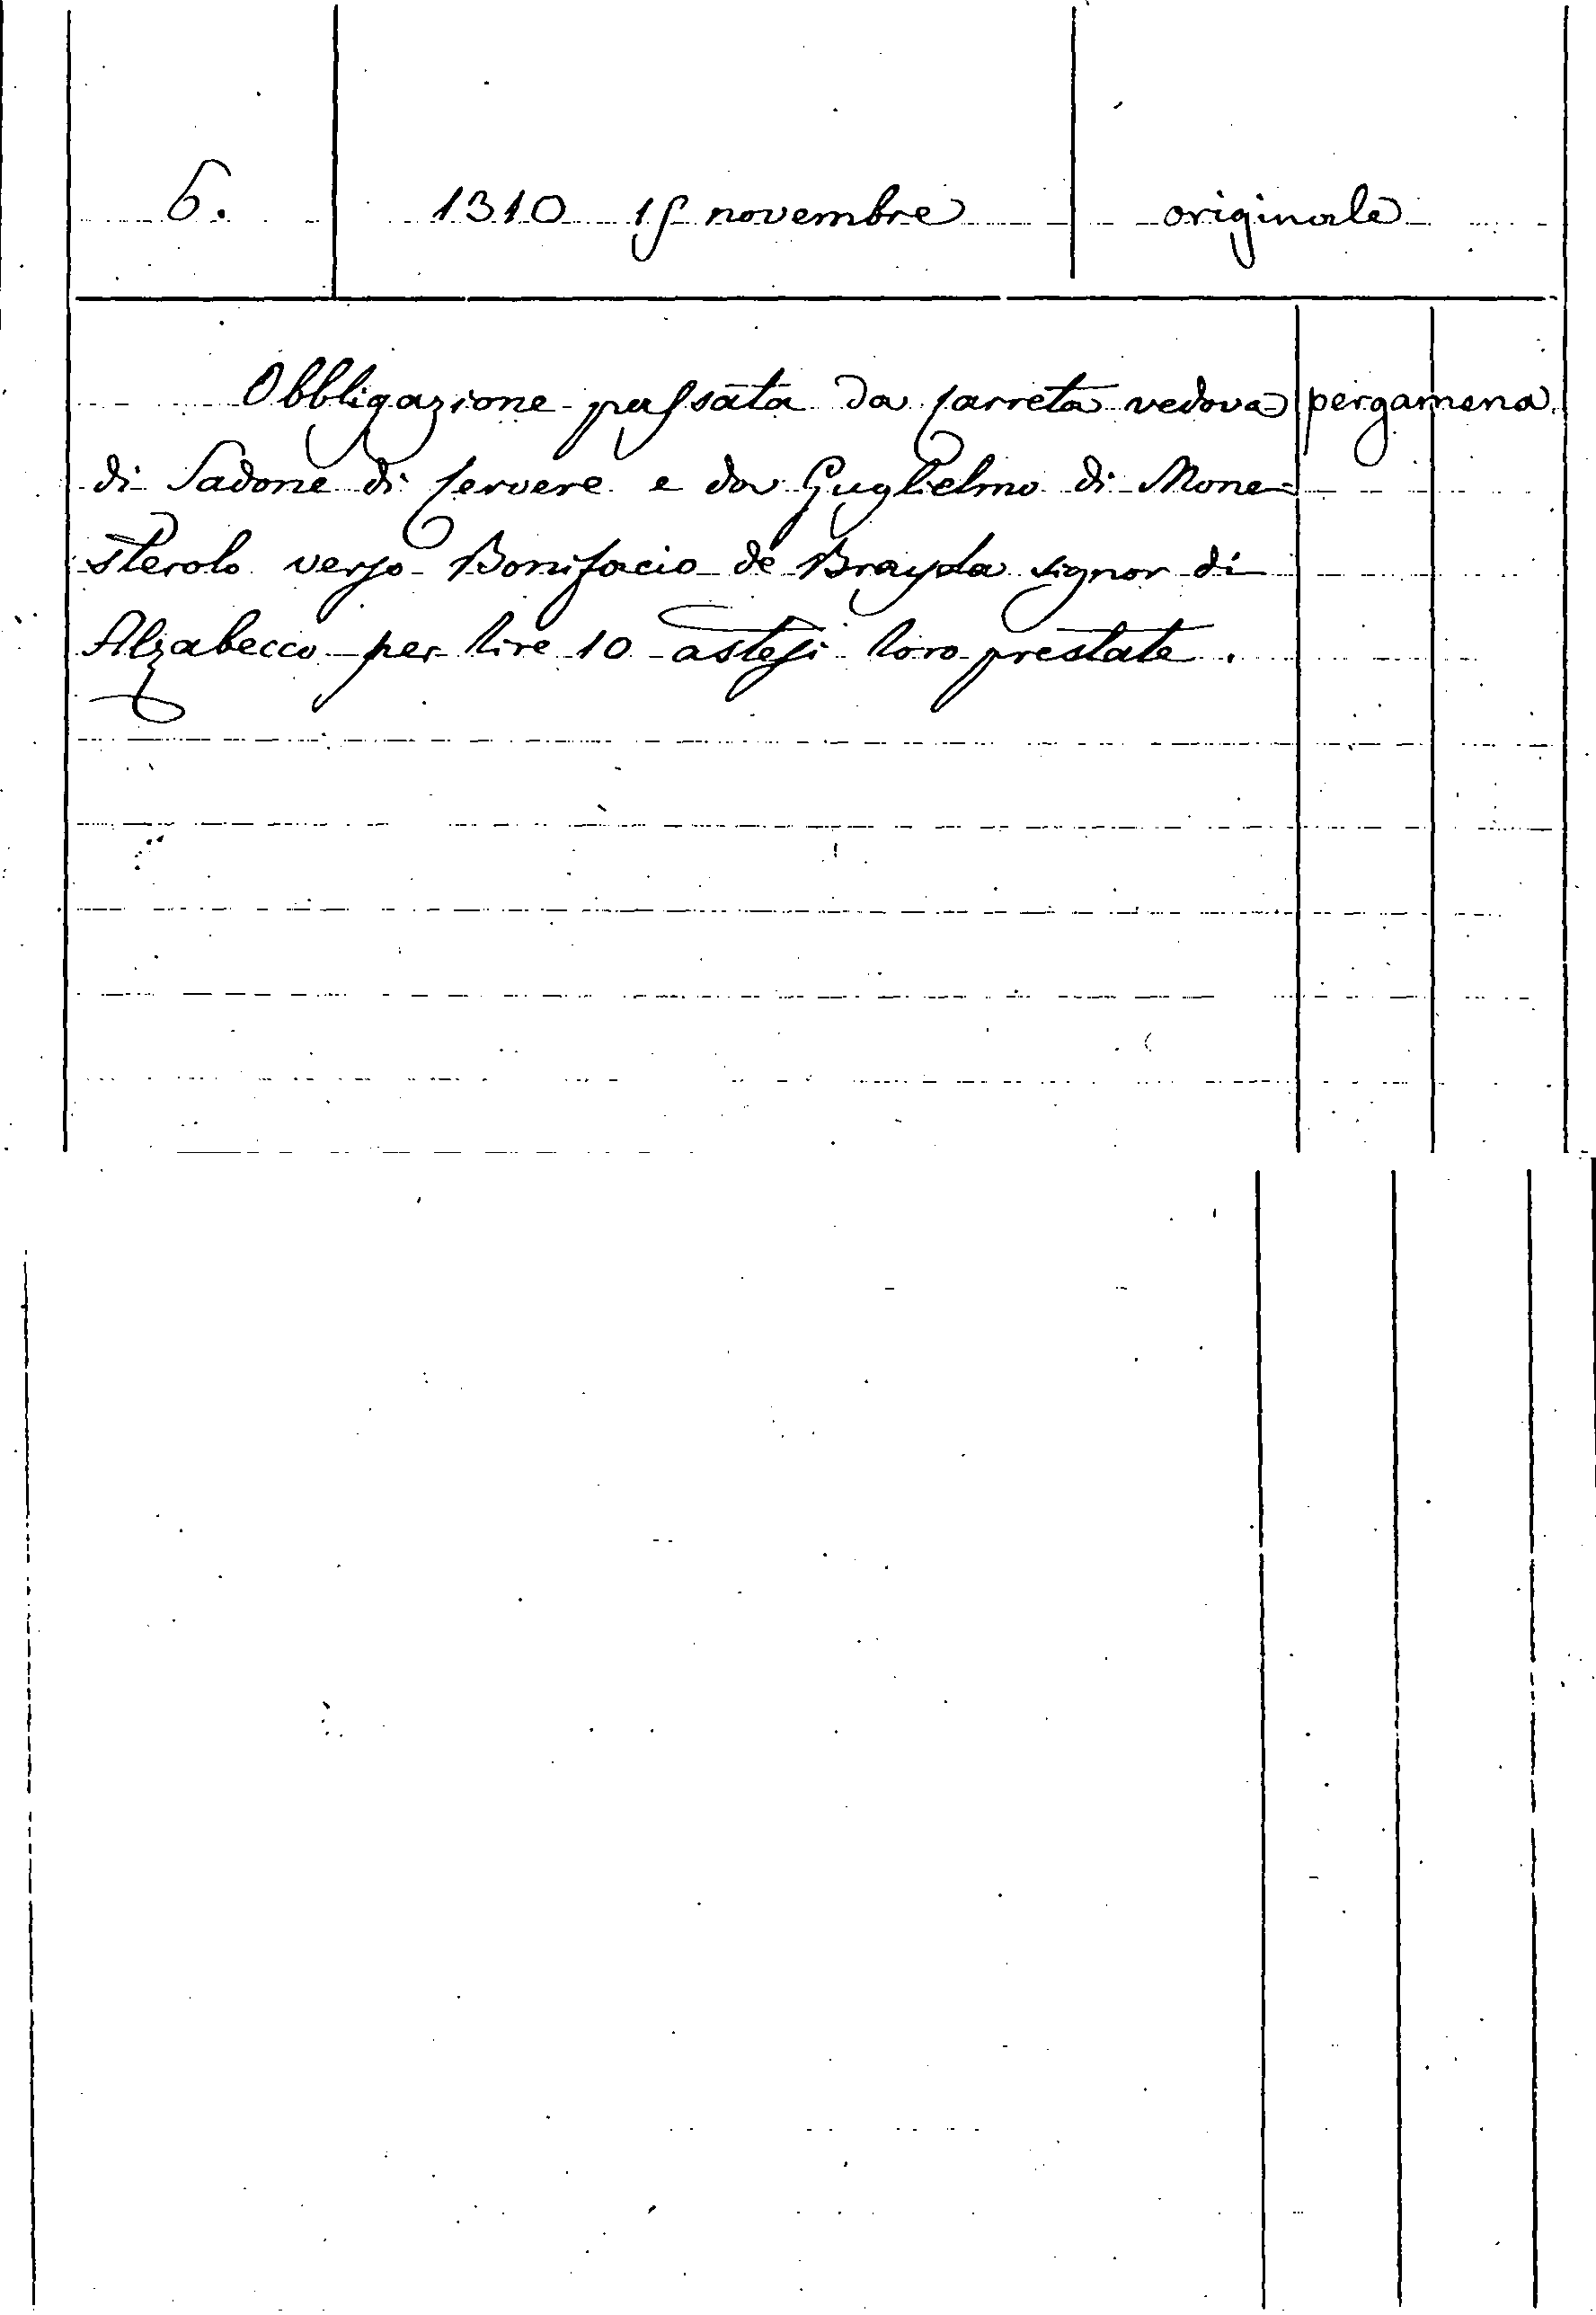 6. 1310 15 novembre originale
Obbligazione passata da Carreta vedova pergamena
di Sadone di Cervere e da Guglielmo di Mone=
sterolo verso Bonifacio de Brayda signor di
Alzabecco per lire 10 astesi loro prestate.